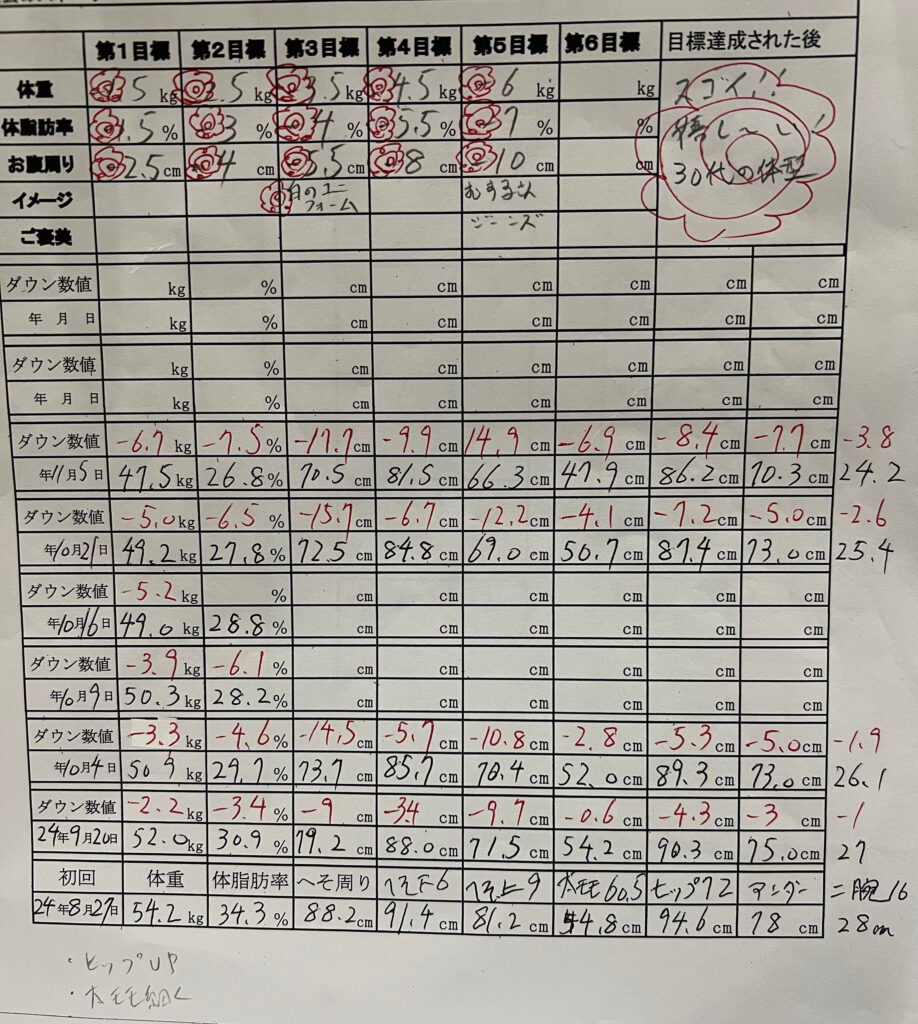 第1目標 第2目標 第3目標 第4目標 第5目標 第6目標 目標達成された後
体重 5 kg .5 kg 3.5 kg 4.5 kg 6 kg kg スゴイ!!
体脂肪率 .5 % 3 % 4 % 5.5 % 7 % % 嬉し〜い!
お腹周り 2.5 cm 4 cm 5.5 cm 8 cm 10 cm cm 30代の体型
イメージ 白のユニフォーム むすめさん
ご褒美 ジーンズ
ダウン数値 kg % cm cm cm cm cm cm
年 月 日 kg % cm cm cm cm cm cm
ダウン数値 kg % cm cm cm cm cm cm
年 月 日 kg % cm cm cm cm cm cm
ダウン数値 -6.7 kg -7.5 % -17.7 cm -9.9 cm 14.9 cm -6.9 cm -8.4 cm -7.7 cm -3.8
年11月5日 47.5 kg 26.8 % 70.5 cm 81.5 cm 66.3 cm 47.9 cm 86.2 cm 70.3 cm 24.2
ダウン数値 -5.0 kg -6.5 % -15.7 cm -6.7 cm -12.2 cm -4.1 cm -7.2 cm -5.0 cm -2.6
年10月21日 49.2 kg 27.8 % 72.5 cm 84.8 cm 69.0 cm 50.7 cm 87.4 cm 73.0 cm 25.4
ダウン数値 -5.2 kg % cm cm cm cm cm cm
年10月16日 49.0 kg 28.8 % cm cm cm cm cm cm
ダウン数値 -3.9 kg -6.1 % cm cm cm cm cm cm
年10月9日 50.3 kg 28.2 % cm cm cm cm cm cm
ダウン数値 -3.3 kg -4.6 % -14.5 cm -5.7 cm -10.8 cm -2.8 cm -5.3 cm -5.0 cm -1.9
年10月4日 50.9 kg 29.7 % 73.7 cm 85.7 cm 70.4 cm 52.0 cm 89.3 cm 73.0 cm 26.1
ダウン数値 -2.2 kg -3.4 % -9 cm -34 cm -9.7 cm -0.6 cm -4.3 cm -3 cm -1
24年9月20日 52.0 kg 30.9 % 79.2 cm 88.0 cm 71.5 cm 54.2 cm 90.3 cm 75.0 cm 27
初回 体重 体脂肪率 へそ周り へそ下6 へそ上9 太モモ60.5 ヒップ72 アンダー 二腕16
24年8月27日 54.2 kg 34.3 % 88.2 cm 91.4 cm 81.2 cm 54.8 cm 94.6 cm 78 cm 28cm
・ヒップUP
・太モモ細く